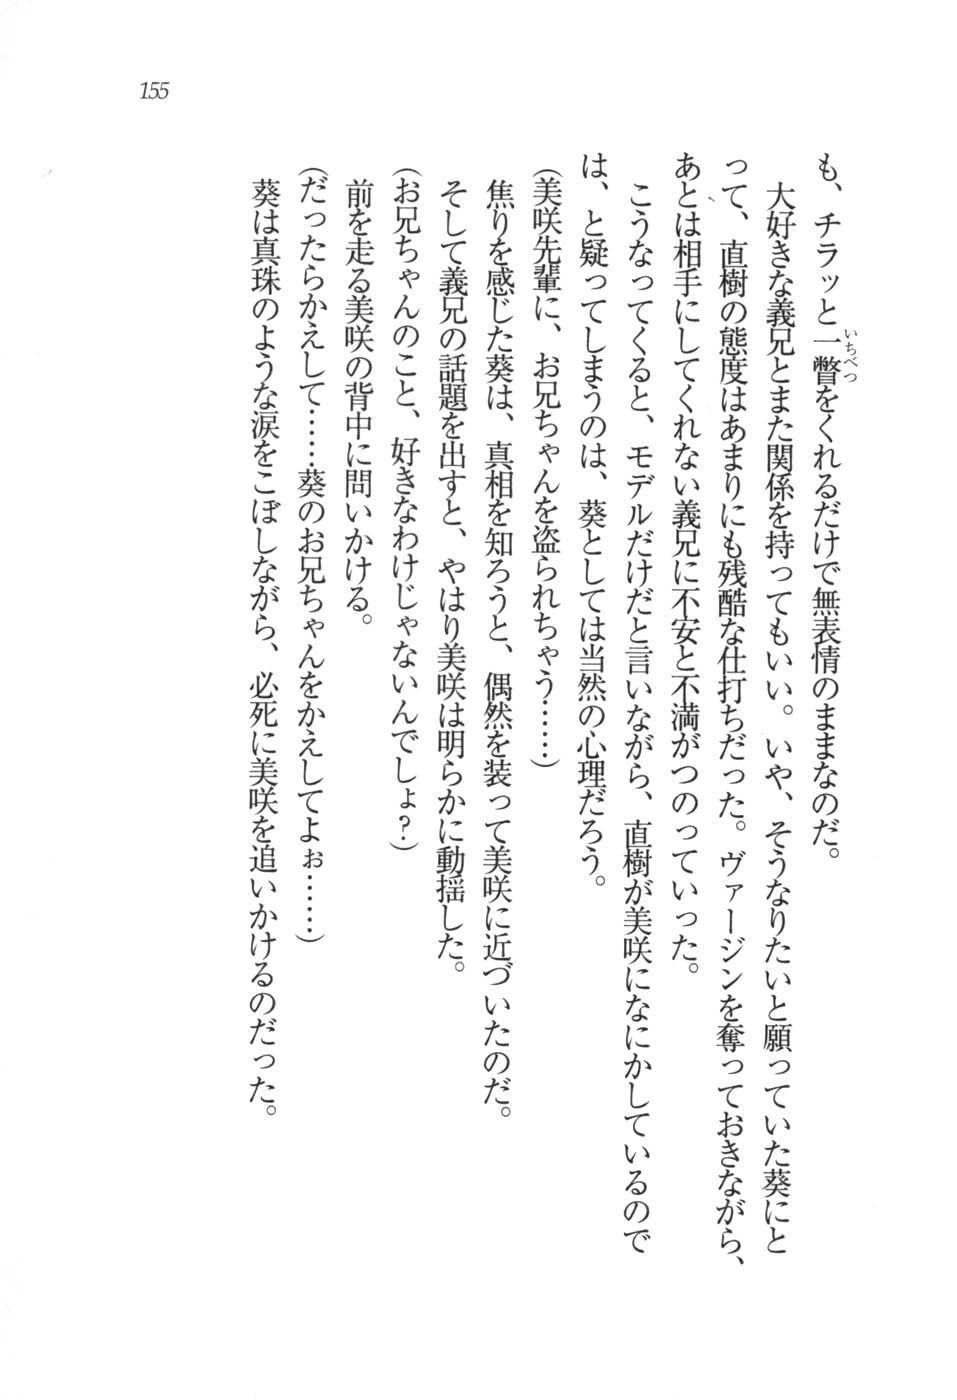 155
も、チラッと一瞥をくれるだけで無表情のままなのだ。
いちべつ
大好きな義兄とまた関係を持ってもいい。いや、そうなりたいと願っていた葵にと
って、直樹の態度はあまりにも残酷な仕打ちだった。ヴァージンを奪っておきながら、
あとは相手にしてくれない義兄に不安と不満がつのっていった。
こうなってくると、モデルだけだと言いながら、直樹が美咲になにかしているので
は、と疑ってしまうのは、葵としては当然の心理だろう。
(美咲先輩に、お兄ちゃんを盗られちゃう……)
焦りを感じた葵は、真相を知ろうと、偶然を装って美咲に近づいたのだ。
そして義兄の話題を出すと、やはり美咲は明らかに動揺した。
(お兄ちゃんのこと、好きなわけじゃないんでしょ?)
前を走る美咲の背中に問いかける。
(だったらかえして……葵のお兄ちゃんをかえしてよぉ……)
葵は真珠のような涙をこぼしながら、必死に美咲を追いかけるのだった。